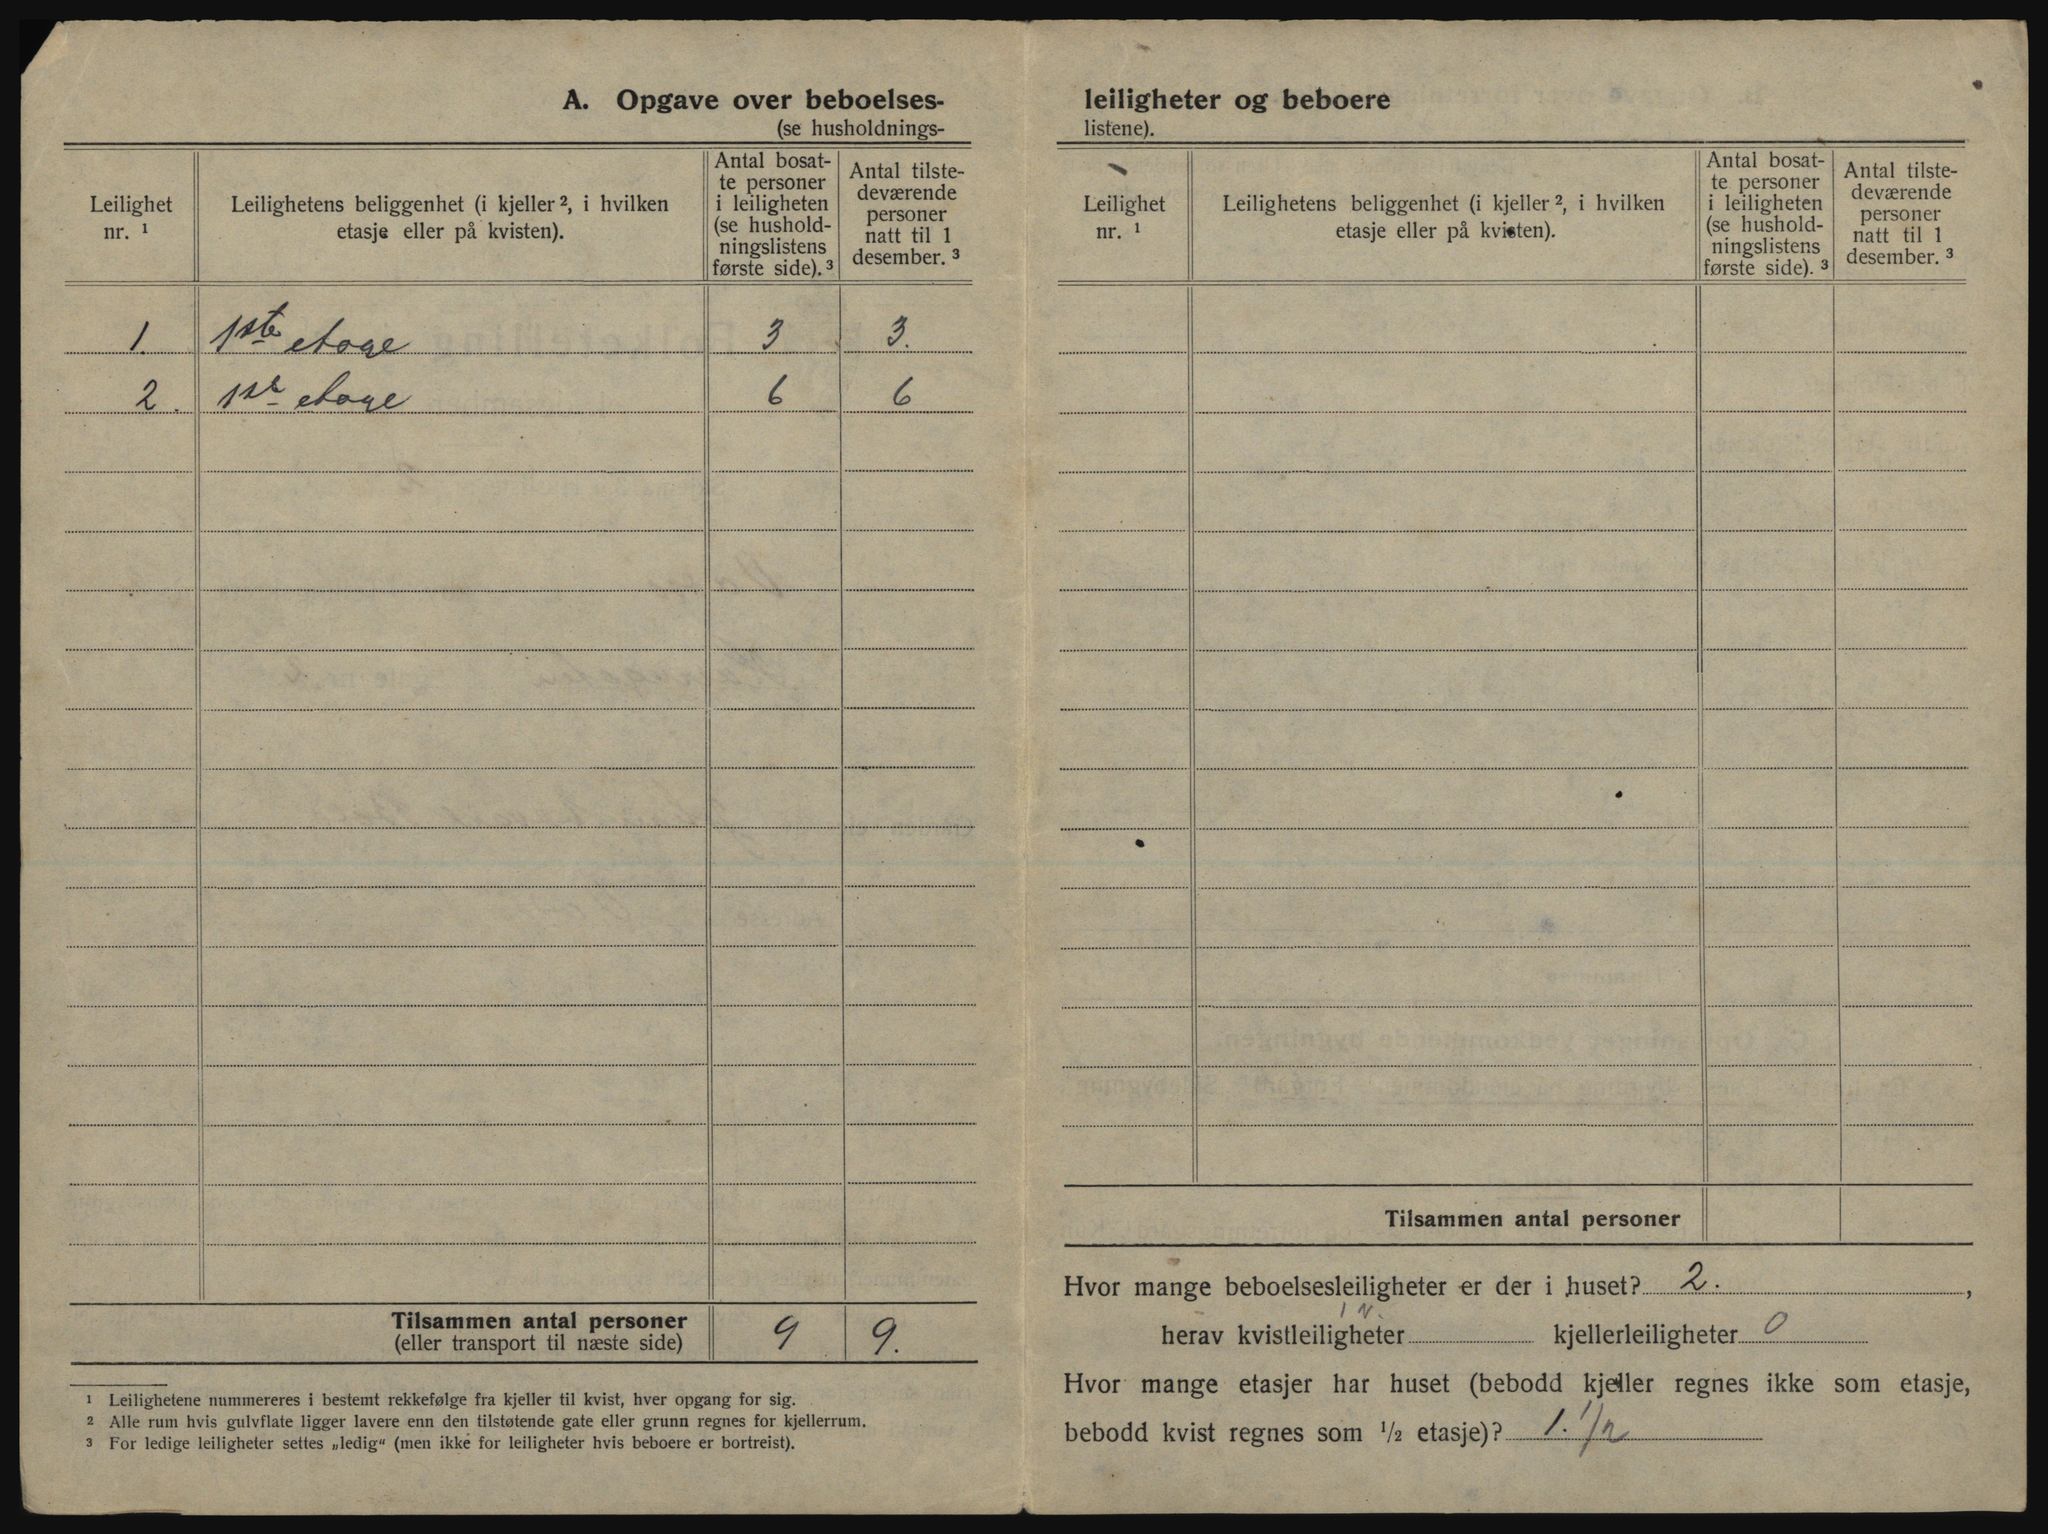 A. Opgave over beboelses-
(se husholdnings-
Leilighet nr. ¹
Leilighetens beliggenhet (i kjeller ², i hvilken
etasje eller på kvisten).
Antal bosat-
te personer
i leiligheten
(se hushold-
ningslistens
første side). ³
Antal tilste-
deværende
personer
natt til 1
desember. ³
1. 1ste etage 3 3.
2. 1ste etage 6 6
Tilsammen antal personer 9 9.
(eller transport til næste side)
¹ Leilighetene nummereres i bestemt rekkefølge fra kjeller til kvist, hver opgang for sig.
² Alle rum hvis gulvflate ligger lavere enn den tilstøtende gate eller grunn regnes for kjellerrum.
³ For ledige leiligheter settes „ledig“ (men ikke for leiligheter hvis beboere er bortreist).
leiligheter og beboere
listene).
Leilighet nr. ¹
Leilighetens beliggenhet (i kjeller ², i hvilken
etasje eller på kvisten).
Antal bosat-
te personer
i leiligheten
(se hushold-
ningslistens
første side). ³
Antal tilste-
deværende
personer
natt til 1
desember. ³
Tilsammen antal personer
Hvor mange beboelsesleiligheter er der i huset? 2. ,
herav kvistleiligheter kjellerleiligheter 0
Hvor mange etasjer har huset (bebodd kjeller regnes ikke som etasje,
bebodd kvist regnes som ½ etasje)? 1. 1/2